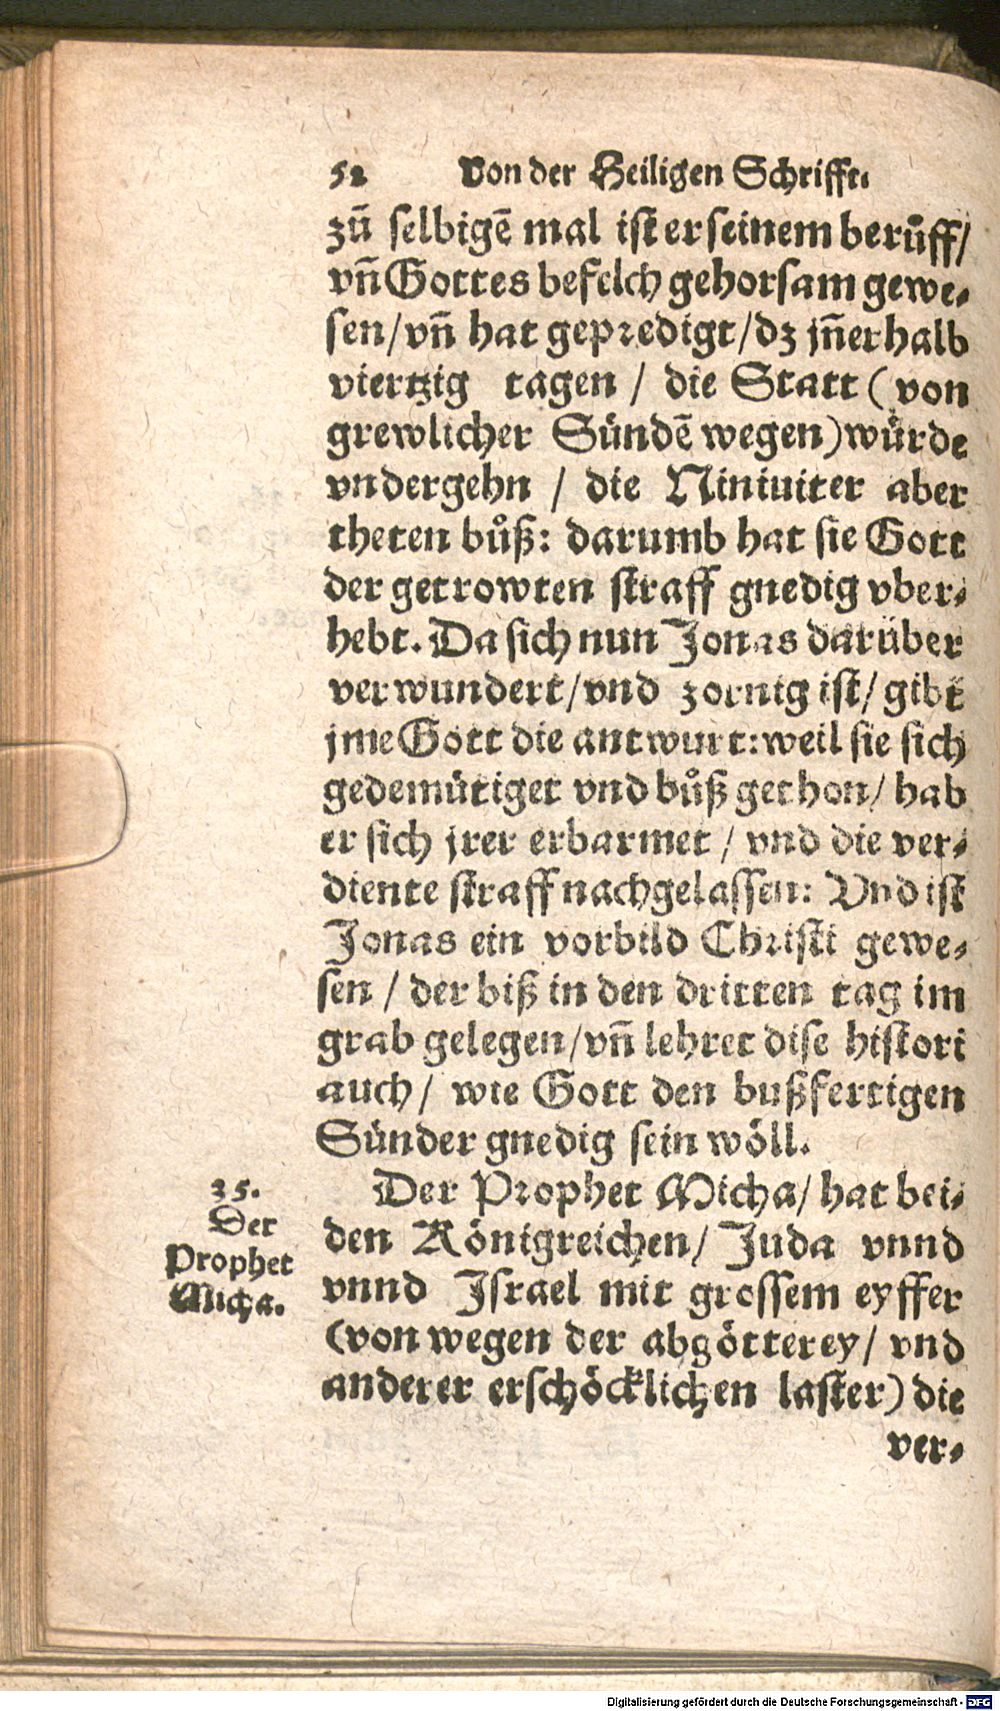 52 Von der Heiligen Schrifft.
zů selbigẽ mal ist er seinem berůff/
vñ Gottes befelch gehorsam gewe-
sen/vñ hat geprediget/dz jñerhalb
viertzig tagen / die Statt (von
grewlicher Sündẽ wegen) würde
vndergehn / die Niniuiter aber
theten bůß: darumb hat sie Gott
der getrowten straff gnedig vber-
hebt. Da sich nun Jonas darüber
verwundert/vnd zornig ist/ gibt
jme Gott die antwurt: weil sie sich
gedemütiget vnd bůß gethon/ hab
er sich jrer erbarmet / vnd die ver-
diente straff nachgelassen: Vnd ist
Jonas ein vorbild Christi gewe-
sen / der biß in den dritten tag im
grab gelegen/vñ lehret dise histori
auch/ wie Gott den bußfertigen
Sünder gnedig sein wöll.
35.
Der
Prophet
Micha.
Der Prophet Micha/ hat bei-
den Königreichen/ Juda vnnd
vnnd Israel mit grossem eyffer
(von wegen der abgötterey/ vnd
anderer erschöcklichen laster) die
ver-
Digitalisierung gefördert durch die Deutsche Forschungsgemeinschaft - DFG